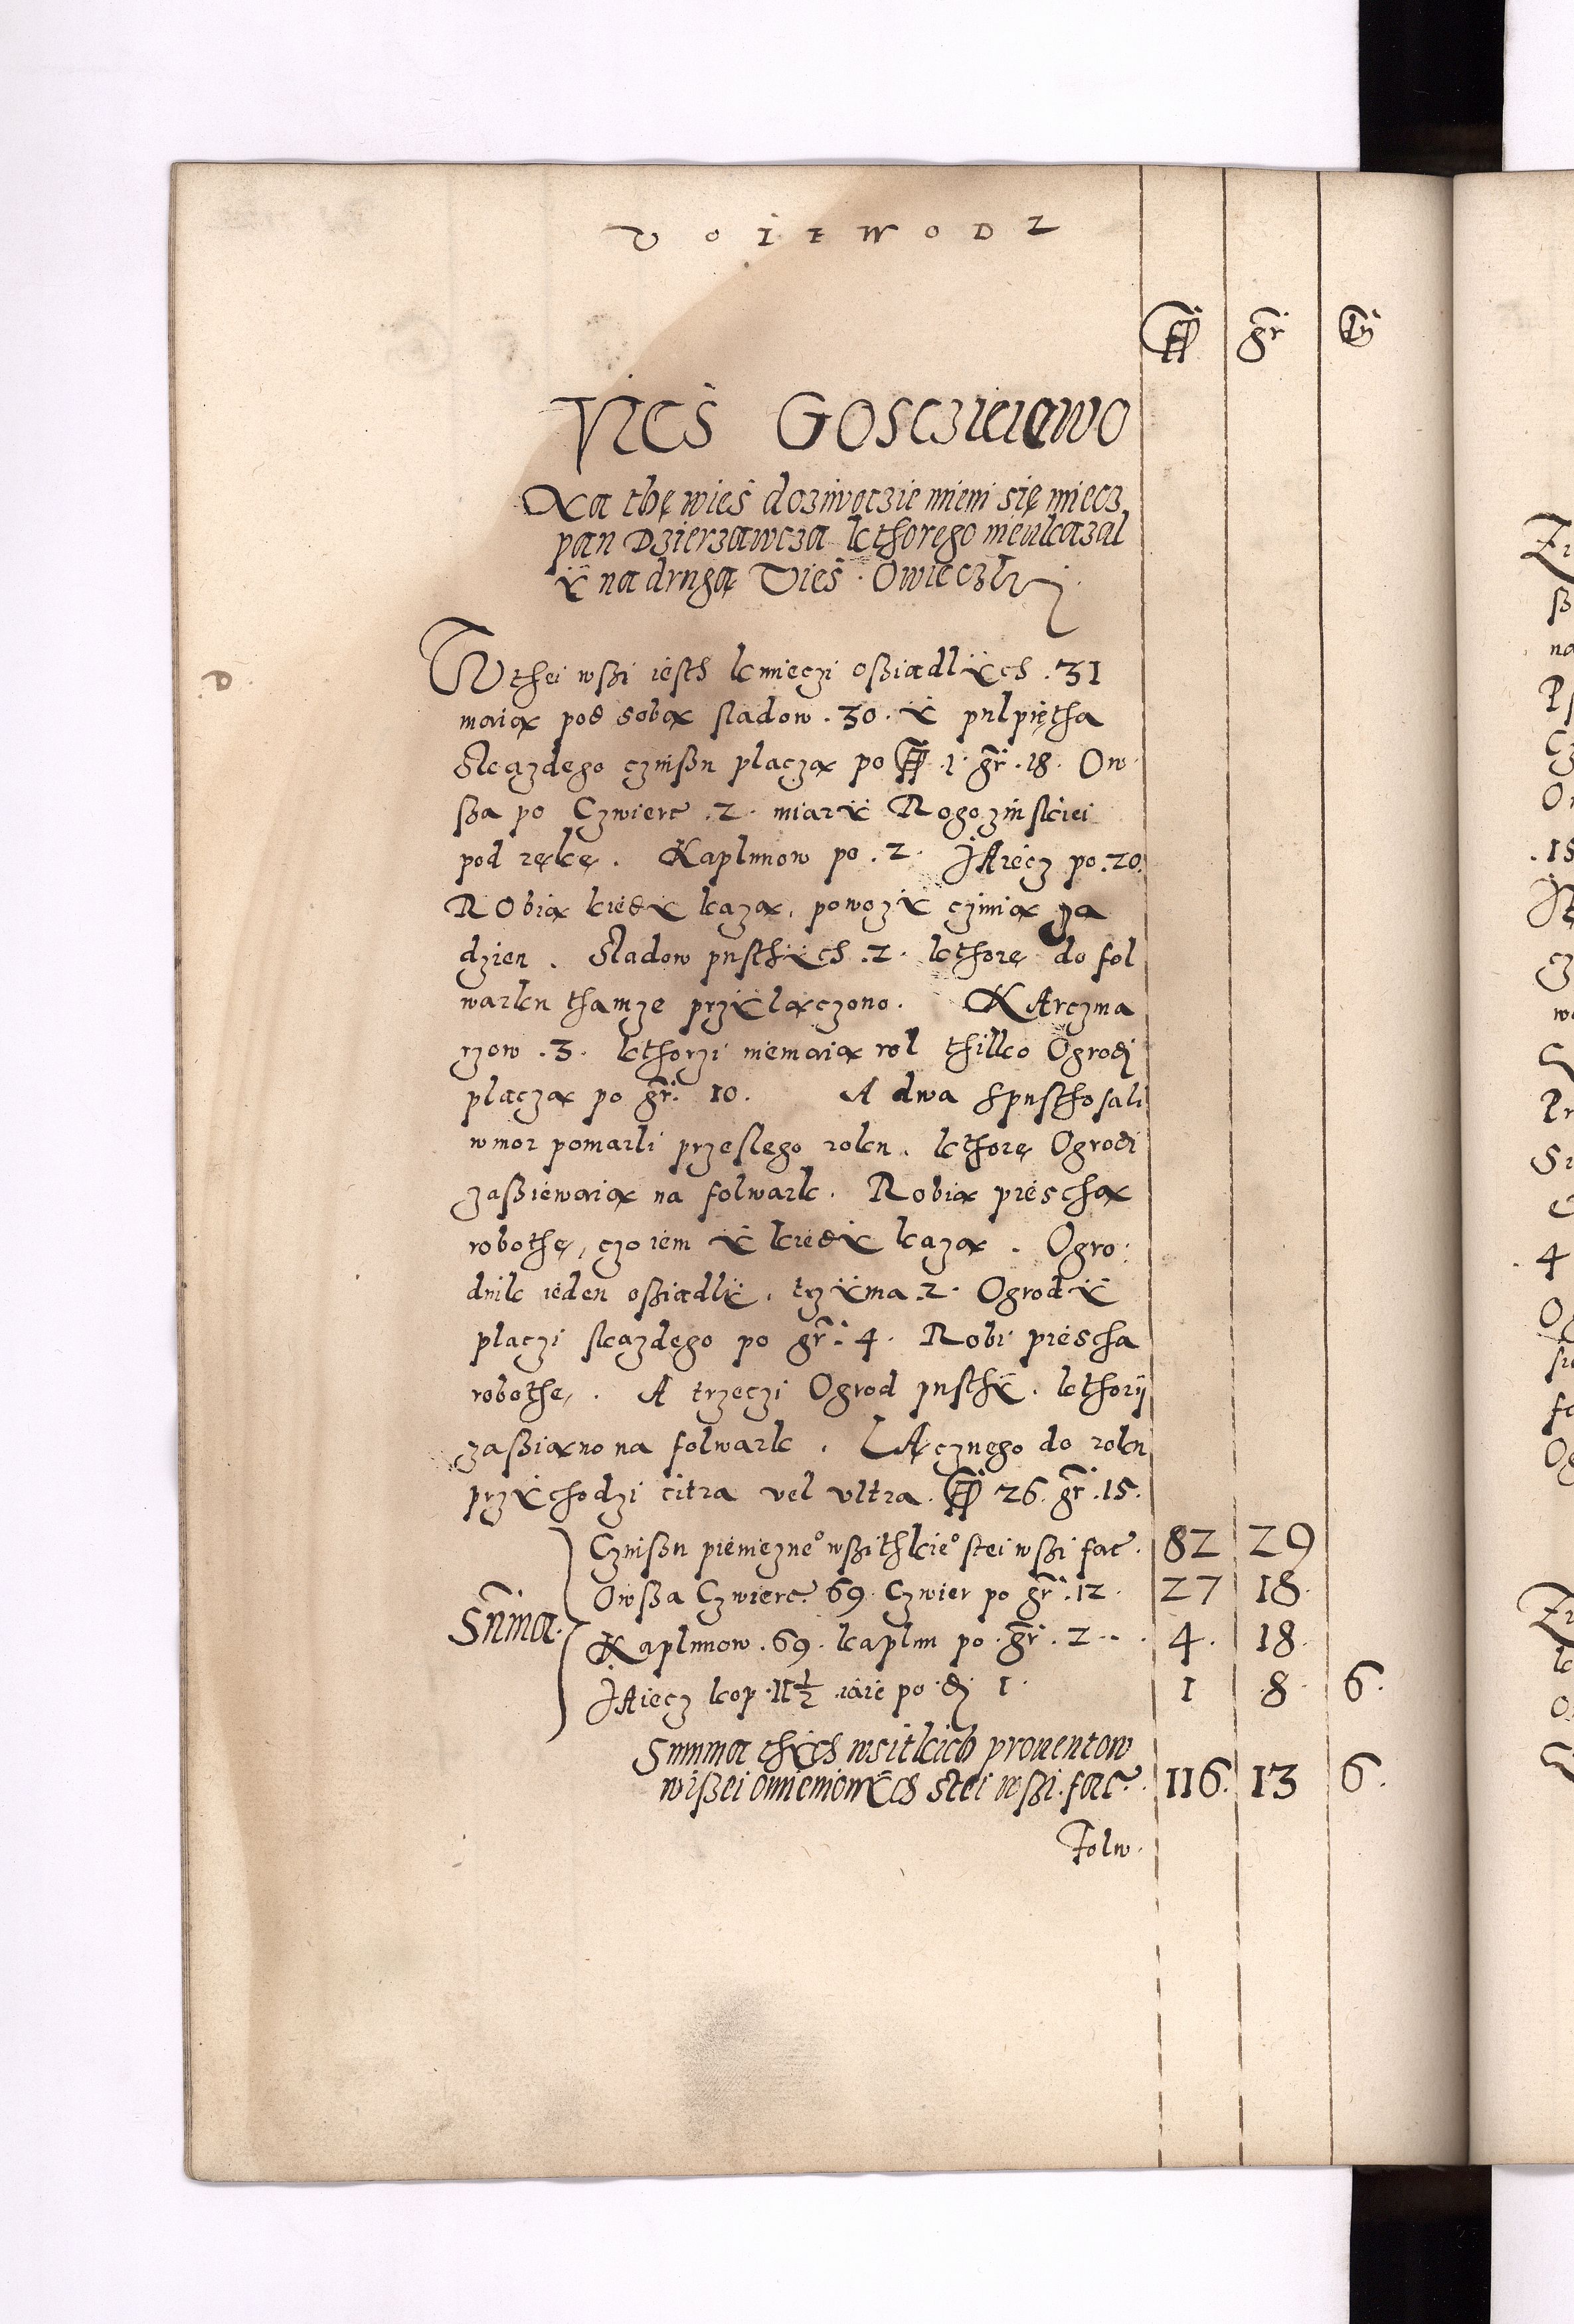 VOIEWODZ
fl gr d
VIES GOSCZIEIEWO
Na thę wieś dozÿwoczie mieni się miecz
pan Dzierzawcza kthorego nieukazal
ÿ na drugą Vieś Owieczki
D
W thei wßi iesth kmieczi oßiadlÿch . 31
maią pod sobą sladow . 30 . ÿ pulpiętha
Skazdego czinßu placzą po fl .1. gr .18. Ow
ßa po Czwierc .2. miarÿ Rogozinskiei
pod rękę . Kaplunow po .2. IAiecz po .20.
RObią kiedÿ kazą, powozÿ czinią za
dzien . Sladow pusthÿch .2. kthore do fol
warku thamze przÿlączono . KArczma
rzow .3. kthorzi niemaią rol thilko Ogrodj
placzą po gr. 10. A dwa spusthosali
wmor pomarli przeslego roku . kthore Ogrodi
zaßiewaią na folwark . Robią pieschą
robothę, czo iem ÿ kiedÿ kazą . Ogro
dnik ieden oßiadlÿ, trzÿma .2. Ogrodÿ
placzi skazdego po gr. 4. Robi piescha
robothę . A trzeczi Ogrod pusthÿ . kthorij
zaßiano na folwark . LAcznego do roku
przÿchodzi citra vel ultra . fl 26. gr .15.
Czinßu pienieznego wßithkiego stei wßi fac . 82 29
Owßa Czwierc 69 Czwier po gr .12. 27 18
Summa
Kaplunow .69. kaplun po gr .2. 4. 18
IAiecz kop .11 1/2 iaie po d 1. 1 8 6.
Summa thÿch wsitkich prouentow
wißei omienionÿch stei wßi fac . 116. 13 6.
Folw.